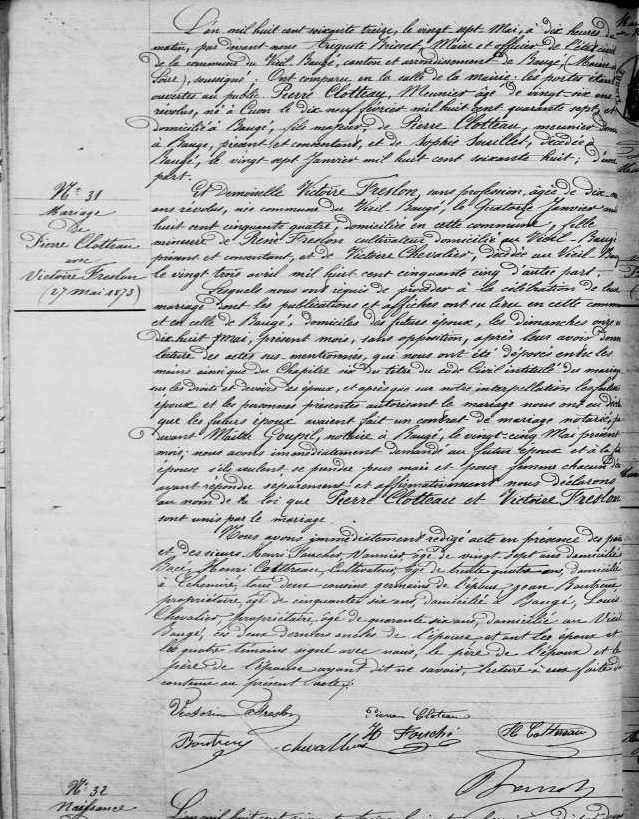 L'an mil huit cent soixante treize, le vingt sept Mai, à dix heures du
matin, par devant nous Auguste Brisset, Maire et officier de l'état civil
de la commune du Vieil Baugé, canton et arrondissement de Baugé, (Maine &
Loire), soussigné; Ont comparu en la salle de la mairie: les portes étant
ouvertes au public. Pierre Clotteau, Meunier âgé de vingt-six ans
révolus, né à Cuon le dix neuf février mil huit cent quarante sept, et
domicilié à Baugé, fils majeur, de Pierre Clotteau, meunier
à Baugé, présent et consentant, et de Sophie décédée à
Baugé, le vingt sept Janvier mil huit cent soixante huit; d'une
part.
Nº 31
Mariage
de
Pierre Clotteau
avec
Victoire Freslon
(27 Mai 1873)
Et demoiselle Victoire Freslon, sans profession, âgée de dix
ans révolus, née commune du Vieil Baugé, le Quatorze Janvier mil
huit cent cinquante quatre, domiciliée en cette commune, fille
mineure de René Freslon cultivateur domicilié au Vieil-Baugé
présent et consentant, et de Victoire Chevalier, décédée au Vieil
le vingt trois avril mil huit cent cinquante cinq d'autre part.
Lesquels nous ont requis de procéder à la célébration de leur
mariage dont les publications et affiches ont eu lieu en cette commune
et en celle de Baugé, domiciles des futurs époux, les dimanches onze
dix huit Mai, présent mois, sans opposition, après leur avoir donné
lecture des actes sus-mentionnés, qui nous ont été déposés entre les
mains ainsi que du Chapitre six du titre du code Civil intitulé du mariage
sur les droits et devoirs des époux, et après que sur notre interpellation, les futurs
époux et les personnes présentes autorisant le mariage nous ont eu
que les futurs époux avaient fait un contrat de mariage notarié,
devant Maître Goupil, notaire à Baugé, le vingt-cinq Mai présent
mois; nous avons immédiatement demandé au futur époux et à la
épouse s'ils veulent se prendre pour mari et pour femme chacun
ayant répondu séparément et affirmativement nous déclarons
au nom de la loi que Pierre Clotteau et Victoire Freslon
sont unis par le mariage.
Nous avons immédiatement rédigé acte en présence des
et, des sieurs Henri Vannier âgé de vingt sept ans domicilié
Henri Cultivateur, âgé de trente quatre ans, domicilié
à Echemiré, tous deux cousins germains de l'époux, Jean
propriétaire âgé de cinquante six ans, domicilié à Baugé, Louis
Chevalier, propriétaire, âgé de quarante six ans, domicilié au Vieil
Baugé, ces deux derniers oncles de l'épouse et ont les époux et
les quatre témoins signé avec nous, le père de l'époux et le
père de l'épouse ayant dit ne savoir, lecture à eux faite du
contenu au présent acte;
Victoire Freslon
Pierre Cloteau
chevallier
H
H
Nº 32
Naissance